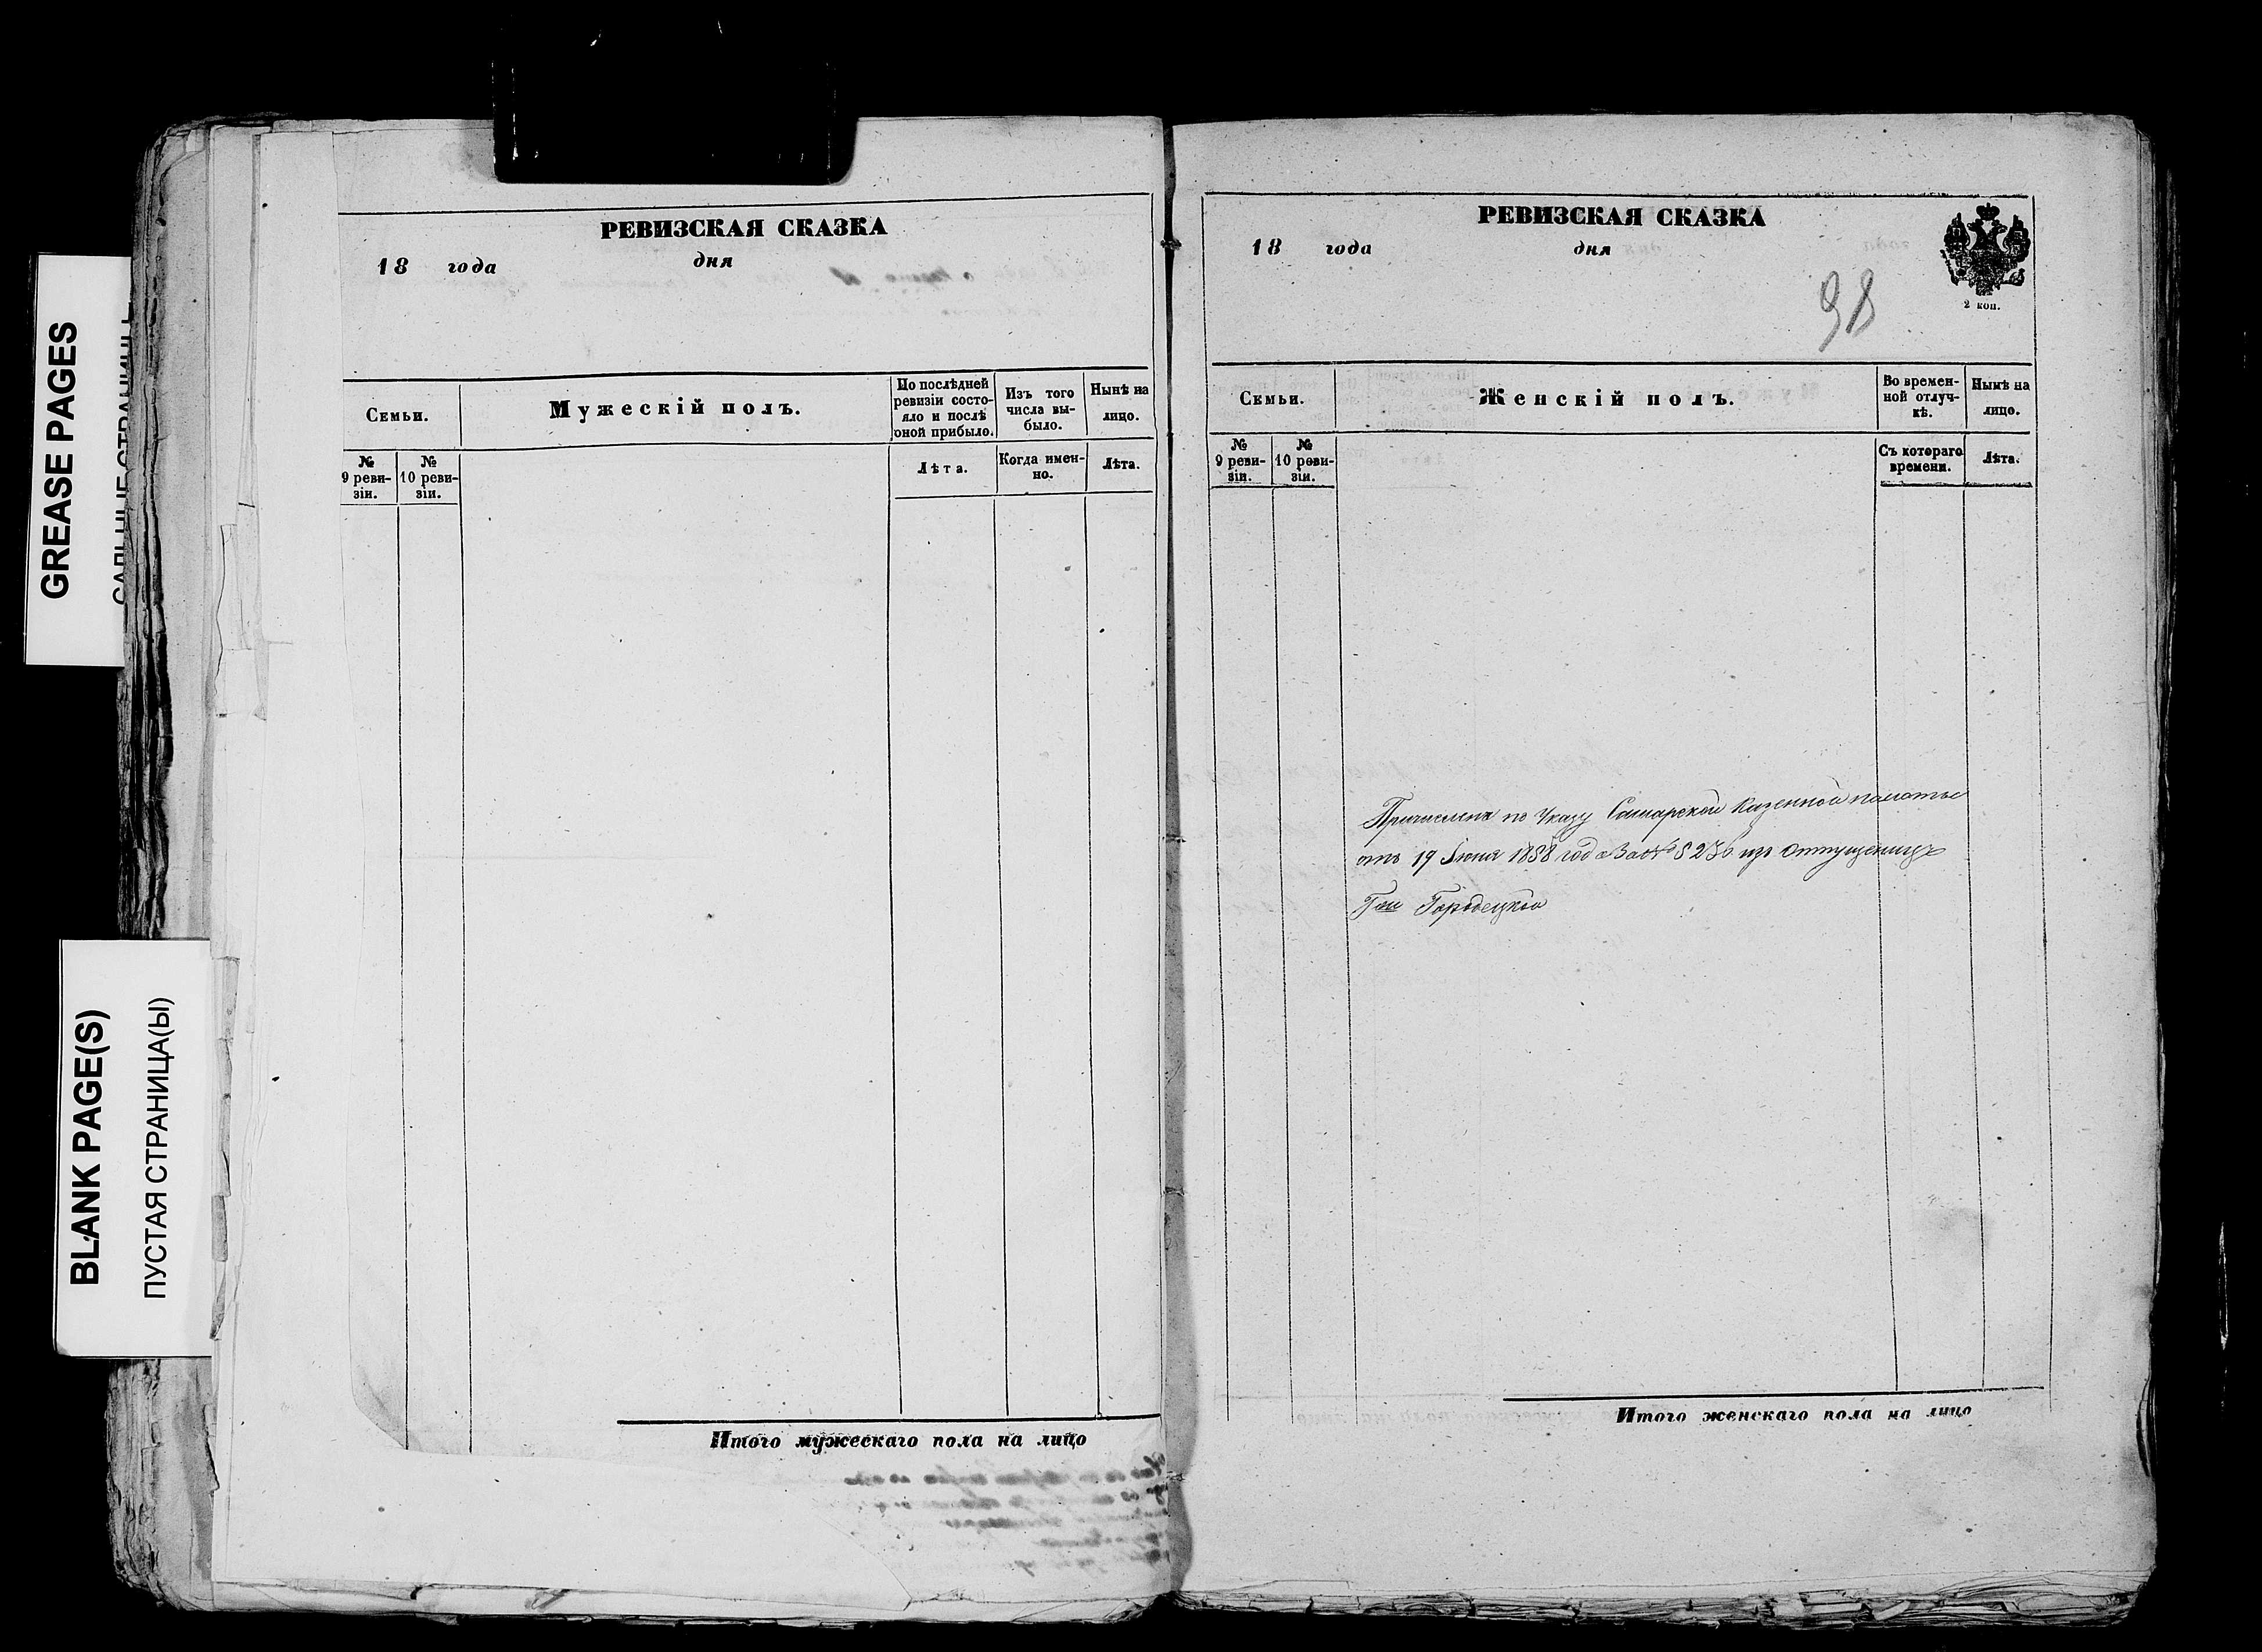 GREASE PAGES
BLANK PAGE(S)
ПУСТАЯ СТРАНИЦА(Ы)
РЕВИЗСКАЯ СКАЗКА
18 года дня
Семьи.
Мужескій полъ.
По послѣдней ревизіи состояло и послѣ оной прибыло.
Изъ того числа выбыло.
Нынѣ на лицо.
№ 9 ревизіи.
№ 10 ревизіи.
Лѣта.
Когда именно.
Лѣта.
Итого мужескаго пола на лицо
РЕВИЗСКАЯ СКАЗКА
18 года дня
2 коп.
98
Семьи.
Женскій полъ.
Во временной отлучкѣ.
Нынѣ на лицо.
№ 9 ревизіи.
№ 10 ревизіи.
Съ котораго времени.
Лѣта.
по Указу Самарской Казенной палаты
отъ 19 Іюня 1858 год За № 5236 изъ отпущеницъ
Городецкой
Итого женскаго пола на лицо